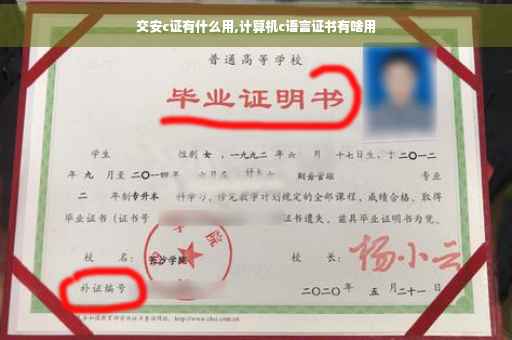 交安c证有什么用,计算机c语言证书有啥用
普通高等学校
毕业证明书
学生 性别 女，一九九二年 六 月 十七日生，于 二〇一二
年 九 月至 二〇一四 年 六月在 财务管理 专业
二 年制 专升本 科学习，修完教学计划规定的全部课程，成绩合格，取得
毕业证书（证书号 证书遗失，兹具毕业证明书为凭。
校 名： 长沙学院 校 长： 杨小云
补证编号 二〇二〇年 五 月 二十一 日
http://www.chsi.com.cn